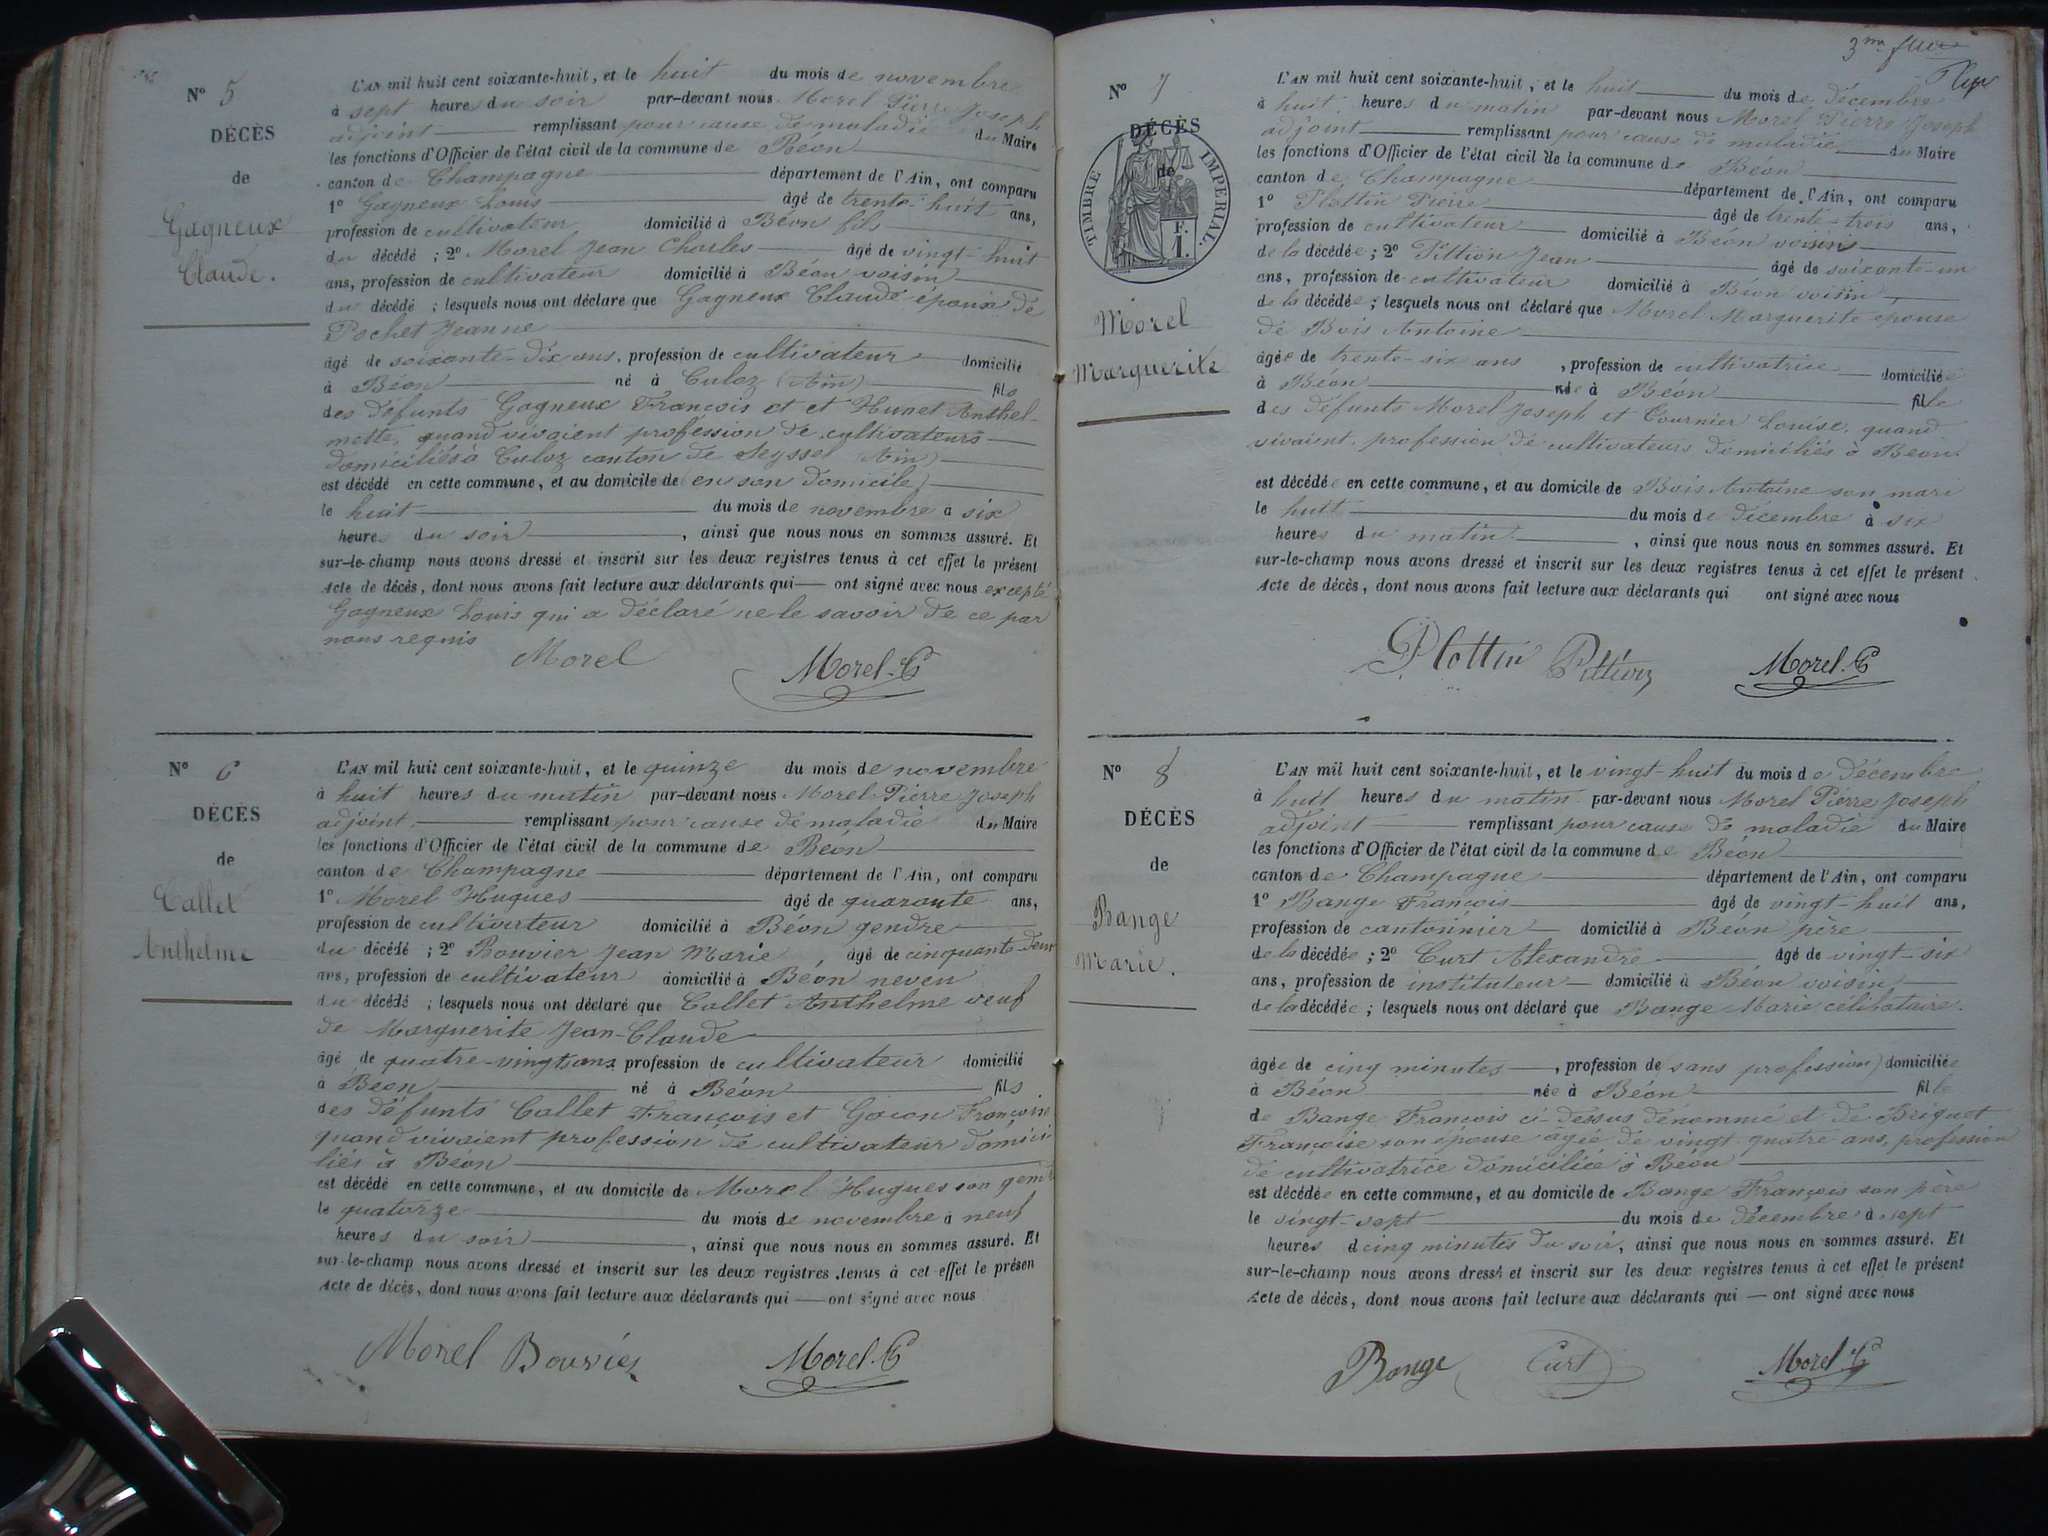 N° 5
DÉCÈS
de
Gagneux
Claude.
L'AN mil huit cent soixante-huit, et le huit du mois de novembre
à sept heures du soir par-devant nous Morel Pierre Joseph
adjoint remplissant pour cause de maladie du Maire
les fonctions d'Officier de l'état civil de la commune de Béon
canton de Champagne département de l'Ain, ont comparu
1° Gagneux Louis âgé de trente-huit ans,
profession de cultivateur domicilié à Béon fils
du décédé ; 2° Morel Jean Charles âgé de vingt-huit
ans, profession de cultivateur domicilié à Béon voisin
du décédé ; lesquels nous ont déclaré que Gagneux Claude époux de
Pochet Jeanne
âgé de soixante-dix ans, profession de cultivateur domicilié
à Béon né à Culoz (Ain) fils
des défunts Gagneux François et et Hunet Anthel-
mette, quand vivaient profession de cultivateurs
domiciliés à Culoz canton de Seyssel (Ain)
est décédé en cette commune, et au domicile de (en son domicile)
le huit du mois de novembre à six
heures du soir , ainsi que nous nous en sommes assuré. Et
sur-le-champ nous avons dressé et inscrit sur les deux registres tenus à cet effet le présent
Acte de décès, dont nous avons fait lecture aux déclarants qui ont signé avec nous excepté
Gagneux Louis qui a déclaré ne le savoir de ce par
nous requis
Morel Morel
N° 6
DÉCÈS
de
Callet
Anthelme
L'AN mil huit cent soixante-huit, et le quinze du mois de novembre
à huit heures du matin par-devant nous Morel Pierre Joseph
adjoint remplissant pour cause de maladie du Maire
les fonctions d'Officier de l'état civil de la commune de Béon
canton de Champagne département de l'Ain, ont comparu
1° Morel Hugues âgé de quarante ans,
profession de cultivateur domicilié à Béon gendre
du décédé ; 2° Bouvier Jean Marie âgé de cinquante-deux
ans, profession de cultivateur domicilié à Béon neveu
du décédé ; lesquels nous ont déclaré que Callet Anthelme veuf
de Marguerite Jean-Claude
âgé de quatre-vingts ans profession de cultivateur domicilié
à Béon né à Béon fils
des défunts Callet François et Goion Françoise
quand vivaient profession de cultivateur domici
liés à Béon
est décédé en cette commune, et au domicile de Morel Hugues son gendre
le quatorze du mois de novembre à neuf
heures du soir , ainsi que nous nous en sommes assuré. Et
sur-le-champ nous avons dressé et inscrit sur les deux registres tenus à cet effet le présen
Acte de décès, dont nous avons fait lecture aux déclarants qui ont signé avec nous
Morel Bouvier Morel
3me
N° 7
DÉCÈS
de
TIMBRE IMPÉRIAL.
F.
1.
Morel
Marguerite
L'AN mil huit cent soixante-huit, et le huit du mois de décembre
à huit heures du matin par-devant nous Morel Pierre Joseph
adjoint remplissant pour cause de maladie du Maire
les fonctions d'Officier de l'état civil de la commune de Béon
canton de Champagne département de l'Ain, ont comparu
1° Plottin Pierre âgé de trente-trois ans,
profession de cultivateur domicilié à Béon voisin
de la décédée ; 2° Pittion Jean âgé de soixante-un
ans, profession de cultivateur domicilié à Béon voisin
de la décédée ; lesquels nous ont déclaré que Morel Marguerite épouse
de Bois Antoine
âgée de trente-six ans , profession de cultivatrice domiciliée
à Béon née à Béon fille
des défunts Morel Joseph et Cournier Louise, quand
vivaient profession de cultivateurs domiciliés à Béon.
est décédée en cette commune, et au domicile de Bois Antoine son mari
le huit du mois de décembre à six
heures du matin , ainsi que nous nous en sommes assuré. Et
sur-le-champ nous avons dressé et inscrit sur les deux registres tenus à cet effet le présent
Acte de décès, dont nous avons fait lecture aux déclarants qui ont signé avec nous
Plottin Pittion Morel
N° 8
DÉCÈS
de
Bange
Marie.
L'AN mil huit cent soixante-huit, et le vingt-huit du mois de décembre
à huit heures du matin par-devant nous Morel Pierre Joseph
adjoint remplissant pour cause de maladie du Maire
les fonctions d'Officier de l'état civil de la commune de Béon
canton de Champagne département de l'Ain, ont comparu
1° Bange François âgé de vingt-huit ans,
profession de cantonnier domicilié à Béon père
de la décédée ; 2° Curt Alexandre âgé de vingt-six
ans, profession de instituteur domicilié à Béon voisin
de la décédée ; lesquels nous ont déclaré que Bange Marie célibataire.
âgée de cinq minutes , profession de (sans profession) domiciliée
à Béon née à Béon fille
de Bange François ci-dessus dénommé et de Briguet
Françoise son épouse agée de vingt-quatre ans, profession
de cultivatrice domiciliée à Béon
est décédée en cette commune, et au domicile de Bange François son père
le vingt-sept du mois de décembre à sept
heures cinq minutes du soir, ainsi que nous nous en sommes assuré. Et
sur-le-champ nous avons dressé et inscrit sur les deux registres tenus à cet effet le présent
Acte de décès, dont nous avons fait lecture aux déclarants qui ont signé avec nous
Bange Curt Morel